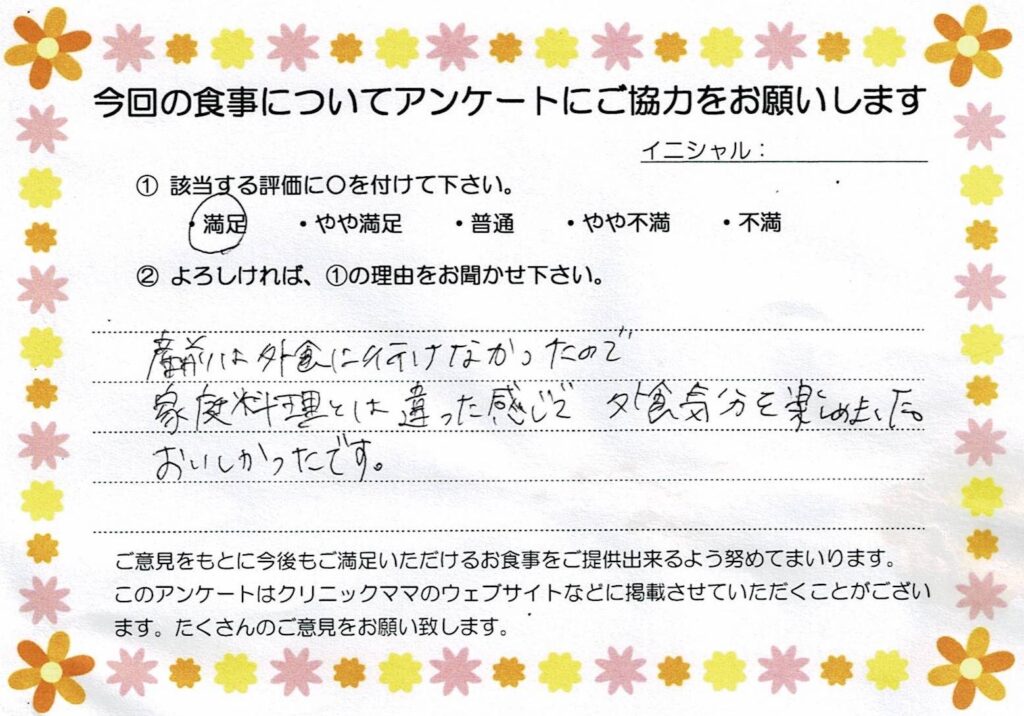 今回の食事についてアンケートにご協力をお願いします
イニシャル：
① 該当する評価に〇を付けて下さい。
・満足 ・やや満足 ・普通 ・やや不満 ・不満
② よろしければ、①の理由をお聞かせ下さい。
産前は外食に行けなかったので
家庭料理とは違った感じで 外食気分を楽しめました。
おいしかったです。
ご意見をもとに今後もご満足いただけるお食事をご提供出来るよう努めてまいります。
このアンケートはクリニックママのウェブサイトなどに掲載させていただくことがござい
ます。たくさんのご意見をお願い致します。